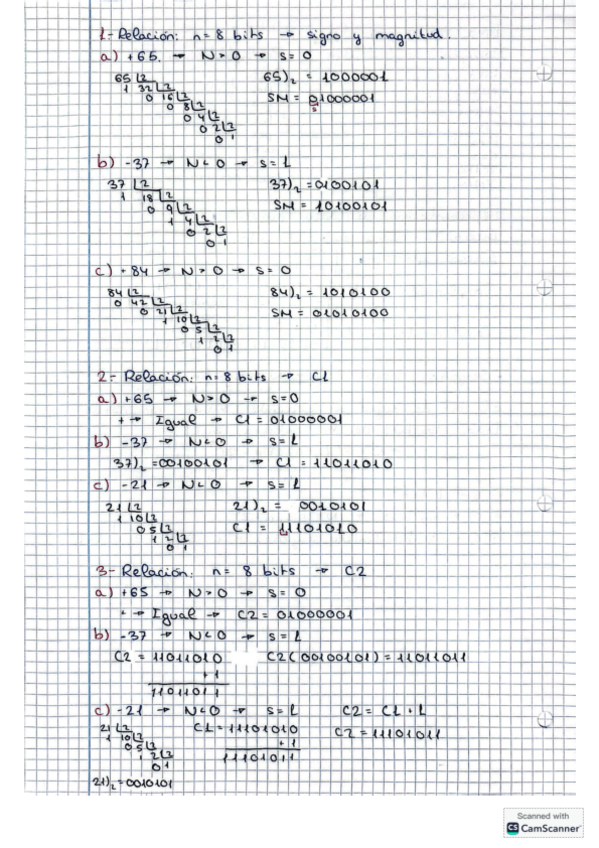 1.- Relación: n = 8 bits → signo y magnitud.
a) +65. → N > 0 → s = 0
65 |2 65)₂ = 1000001
1 32 |2 SM = 01000001
0 16 |2 s
0 8 |2
0 4 |2
0 2 |2
0 1
b) -37 → N < 0 → s = 1
37 |2 37)₂ = 0100101
1 18 |2 SM = 10100101
0 9 |2
1 4 |2
0 2 |2
0 1
c) +84 → N > 0 → s = 0
84 |2 84)₂ = 1010100
0 42 |2 SM = 01010100
0 21 |2
1 10 |2
0 5 |2
1 2 |2
0 1
2.- Relación: n = 8 bits → C1
a) +65 → N > 0 → s = 0
+ → Igual → C1 = 01000001
b) -37 → N < 0 → s = 1
37)₂ = 00100101 → C1 = 11011010
c) -21 → N < 0 → s = 1
21 |2 21)₂ = 0010101
1 10 |2 C1 = 11101010
0 5 |2
1 2 |2
0 1
3.- Relación: n = 8 bits → C2
a) +65 → N > 0 → s = 0
+ → Igual → C2 = 01000001
b) -37 → N < 0 → s = 1
C2 = 11011010 C2(00100101) = 11011011
+1
11011011
c) -21 → N < 0 → s = 1 C2 = C1 + 1
21 |2 C1 = 11101010 C2 = 11101011
1 10 |2 +1
0 5 |2 11101011
1 2 |2
0 1
21)₂ = 0010101
Scanned with
CS CamScanner